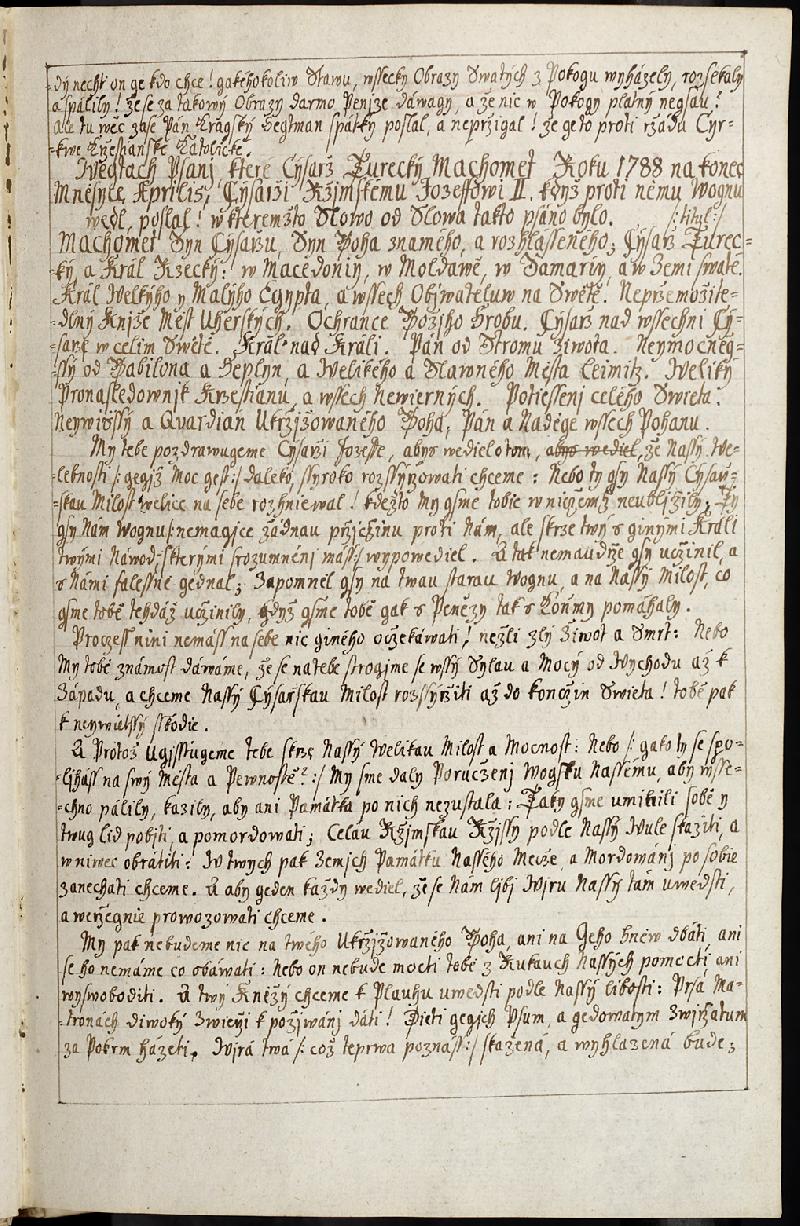 -dy necht on ge kdo chce! gakéhokoliw Stawu, wssecky Obrazy Swatých z Pokogu wyházely, rozsekaly
a spálily! že se za takowy Obrazy darmo Penjze dáwagy, a že nic w Pokogy platny negsau!
Ale tu wěc zase Pán Kragský Hegtman spátky poslal, a nepržigal! že geto proti ržádu Cyr-
-kwe Križesťanské Katolické.
Weytach Psanj, které Cysarž Turecký Machomet Roku 1788 na konec
Mněsyce Aprilis, Cysarži Ržjmskému Jozeffowi II. když proti němu Wognu
wedl, poslal! w kteremžto Slowo od Slowa takto psáno bylo. /: titul :/
Machomet Syn Cysaržu, Syn Boha znamého, a rozhlasseného; Cysarž Turec=
-ký, a Král Ržecký: w Macedoniy, w Moldawě, w Samariy, a w Zemi swaté.
Král Welkýho y Malýho Egypta, a wssech Obýwateluw na Swětě. Nepržemožite=
-dlný Knjže Měst Uherských. Ochrance Božjho hrobu. Cysarž nad wssechni Cý-
-sarže w celim Swětě. Král nad Králi. Pán od Stromu žiwota. Neymocněg-
-ssý od Babilona a Seplyn, a Welikého a Slawného Města Leimitz. Weliký
Pronasledownjk Krzestianu, a wssech Newierných. Potiessenj celého Swieta.
Neywissý a Quardian Ukržjžowaného Boha, Pán a Naděge wssech Pohanu.
My tebe pozdrawugeme Cysarži Jozeffe, abys wediel o tom, abys wediel, že Nassý We-
-lebnosti /: gegjž Moc gest :/ daleko, ssyroko rozssyržowati chceme: Nebo ty gsy Nassý Cysarž-
-skau Milost welice na sebe rozhniewal! kdežto My gsme tobie w niczemž neubljžily; Ty
gsy Nám Wognu /: nemagjce žádnau przjczinu proti Nám, ale skrze twý s ginymi Králi
twými Náwod /: kterými srozuměnj máss :/ wypowediel. A tak nemaudrže gsy uczinil, a
s Námi falessně gednal; Zapomněl gsy na twau starau Wognu, a na Nassý Milost, co
gsme tobě tehdáž uczinily, gdyž gsme tobě gak s Penězy tak s Koňmy pomáhaly.
Proczess nini nemáss na sebe nic giného oczekáwati, nežli zlý žiwot a Smrt: Nebo
My tobě známost dáwáme, že se na tebe strogjme se wssý Sylau a Mocý od Wychodu až k
Západu, a chceme Nassý Cysarskau Milost rozssyržiti až do konczin Swieta! tobě pak
k neywětssý sskodie.
A Protož Ugjsstugeme tebe skrz Nassý Welikau Milost a Mocnost: Nebo /: gako ty se spo-
-ljháss na swý Města a Pewnostě? :/ My sme daly Poruczenj Wogsku Nassému, aby wsse-
-chno pálily, kazily, aby ani Památka po nich nezustala: Taky gsme umiňili sobě y
twug Lid pobjti, a pomordowati; Celau Ržjmskau Ržjssy podle Nassý Wule skaziti, a
w niwec obrátiti: W twych pak Zemjch Památku Nassého Mecže, a Mordowánj po sobie
zanechati chceme. A aby geden každy wediel, že se Nám ljbj Wjru Nassý tam uwedsti,
a weržegnie prowozowati chceme.
My pak nebudeme nic na twého Ukržjžowaného Boha, ani na Geho hněw dbáti, ani
se ho nemáme co obáwati: Nebo on nebude mocti tobě z Rukauch Nassých pomocti ani
wyswoboditi. A twý Kněžý chceme k Pluhu uwedsti podle Nassý libosti: Prsá Ma-
-tronách diwoký Zwieržj k požjwánj dáti! Dieti gegjch Psum, a gedowatym Zwjržatum
za Pokrm házeti. Wjrá twá /: což teprwa poznáss :/ skažená, a wyhlazená bude;